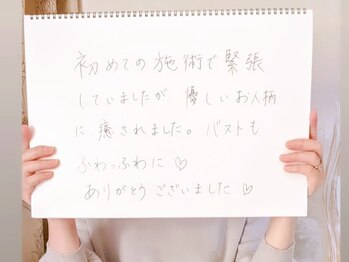 初めての施術で緊張
していましたが 優しいお人柄
に 癒されました。バストも
ふわっふわに♡
ありがとうございました♡